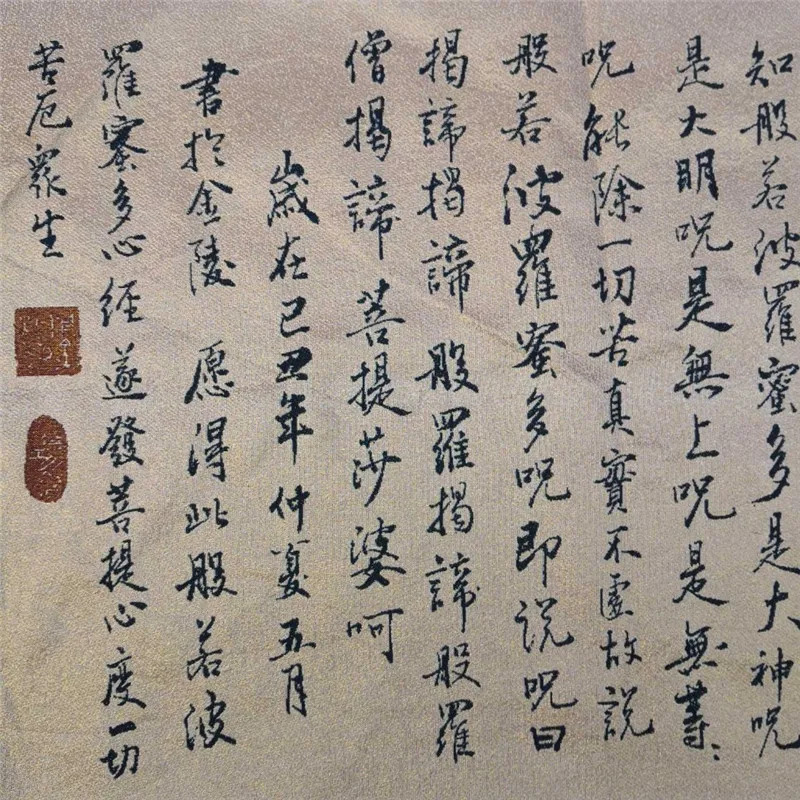 知般若波羅蜜多是大神呪
是大明呪是無上呪是無等〻
呪能除一切苦真實不虛故說
般若波羅蜜多呪即说呪曰
揭諦揭諦 般羅揭諦般羅
僧揭諦 菩提莎婆呵
歲在己丑年仲夏五月
書於金陵 愿得此般若波
羅蜜多心經遂發菩提心度一切
苦厄眾生